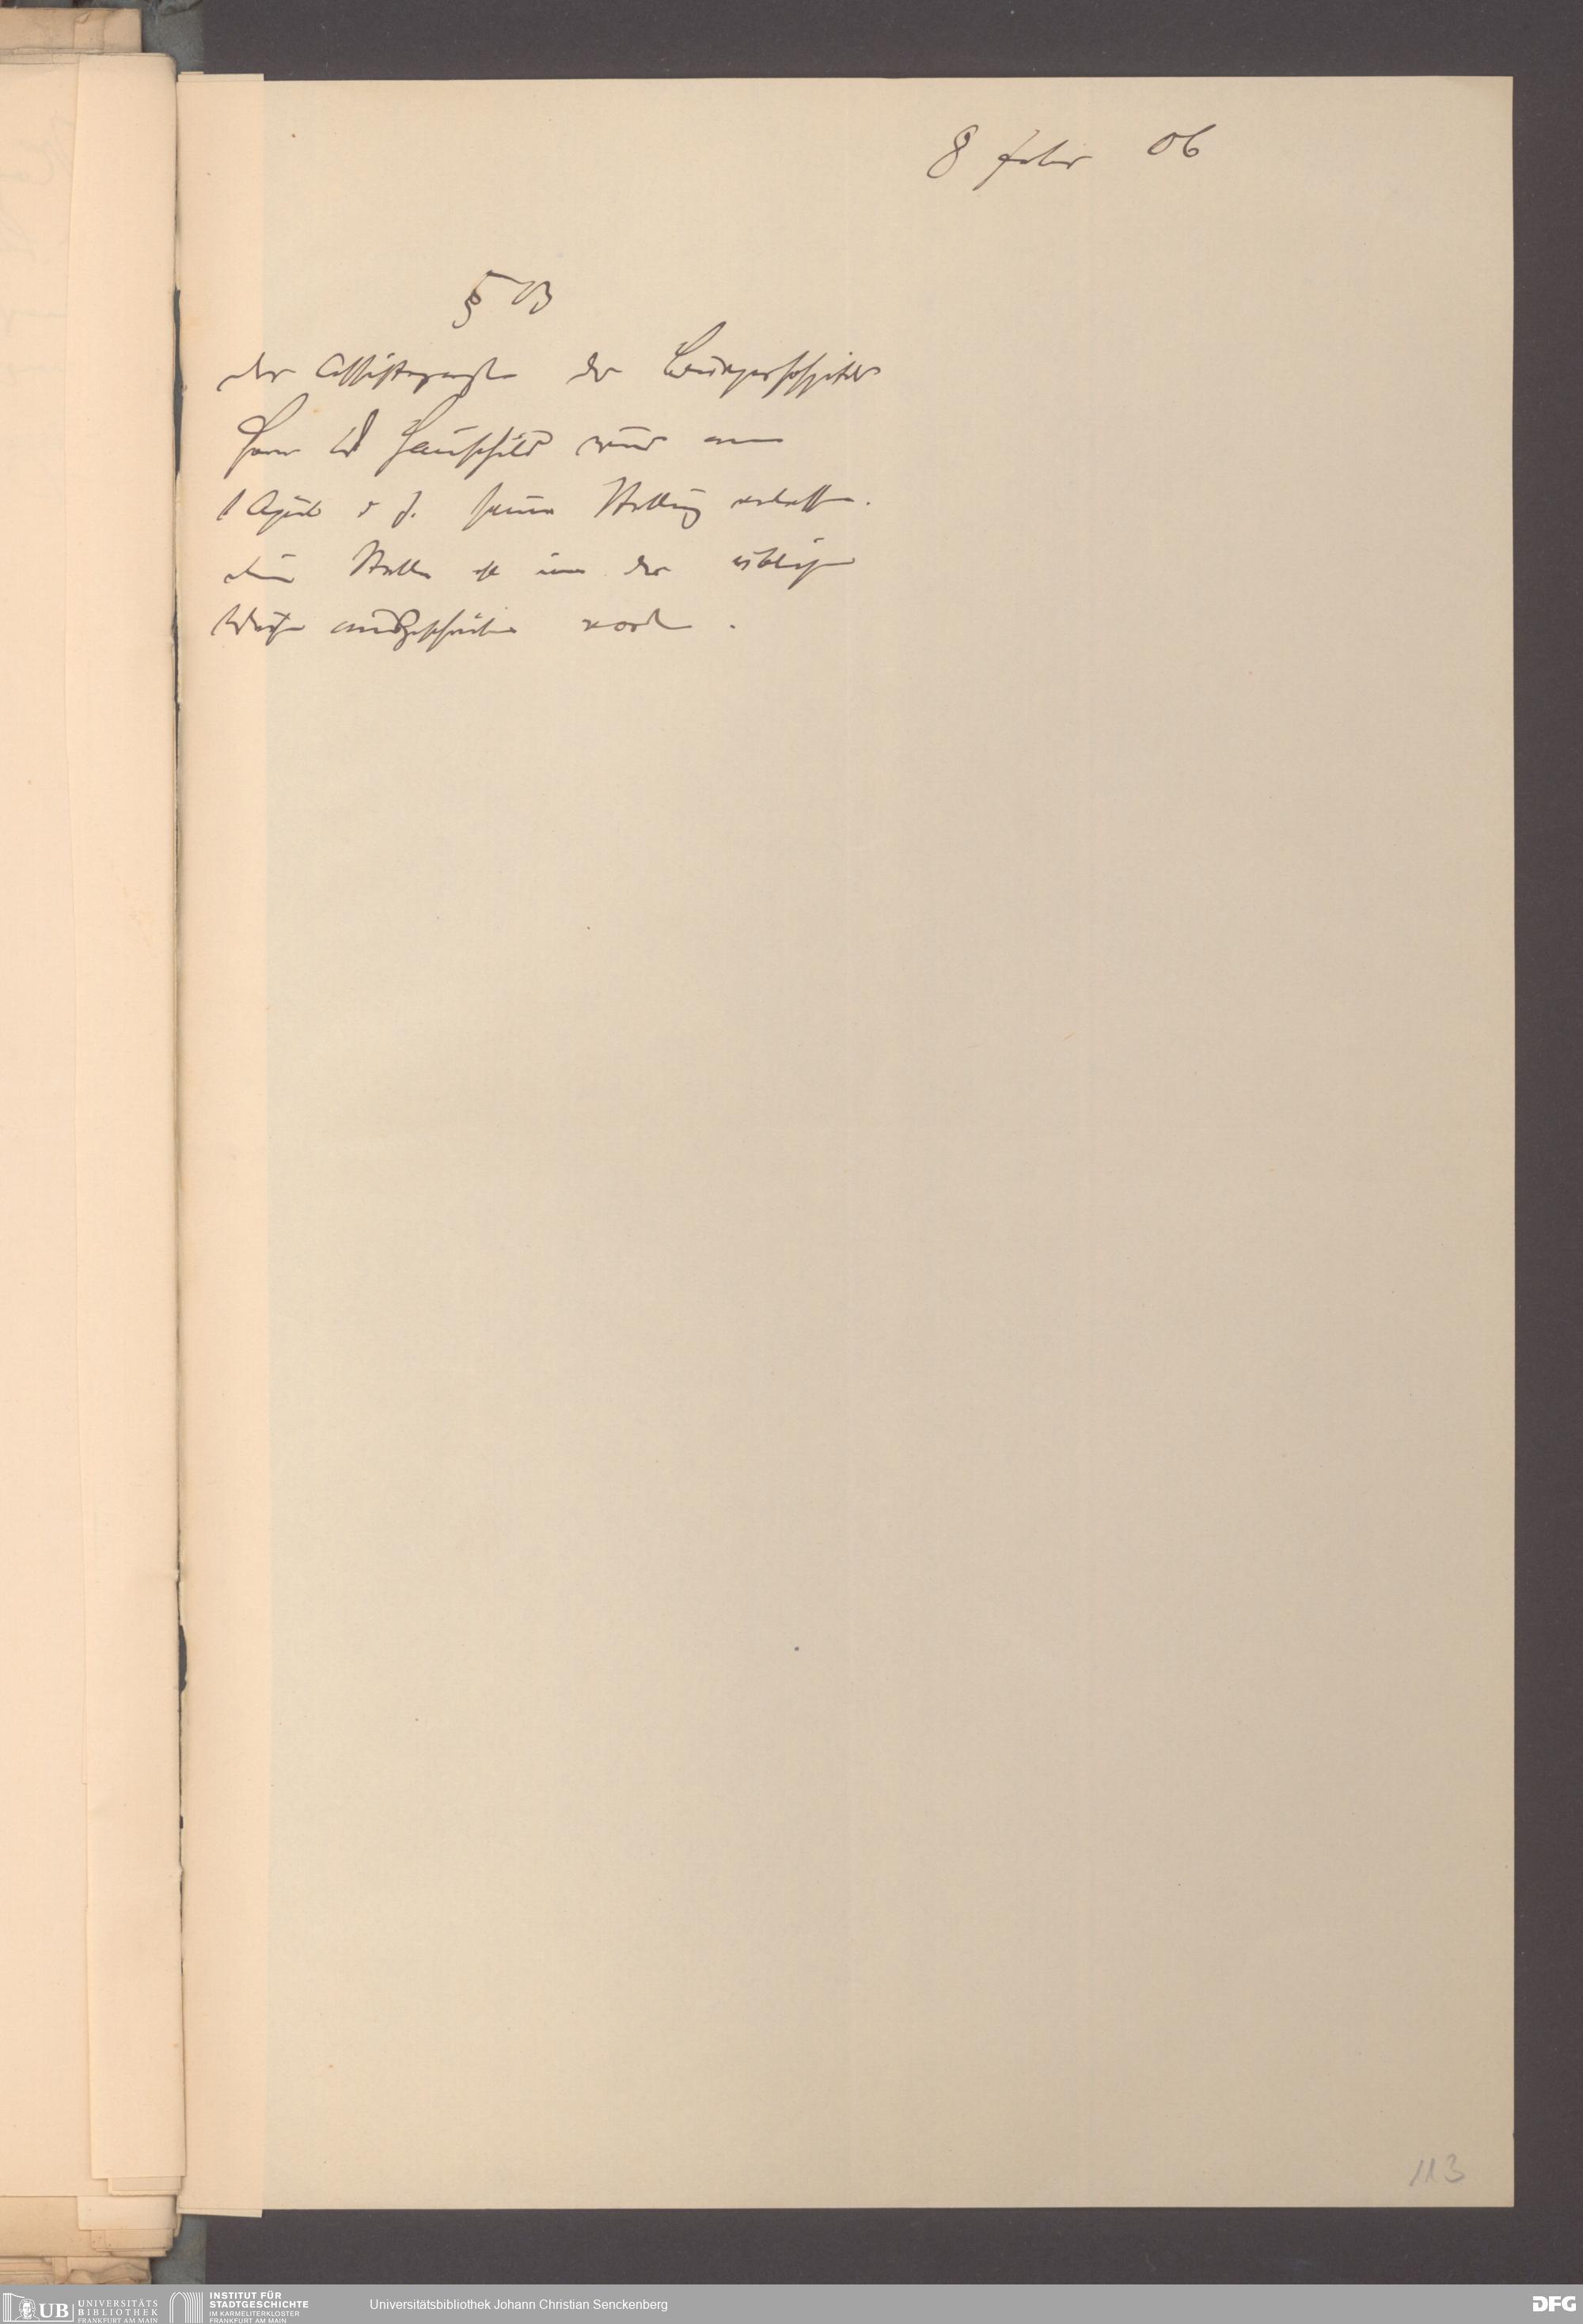 8 Febr 06
§ 13
Der Assistenzarzt des Bürgerhospitals
Herr Dr Hauschild wird am
1 April d J. seine Stellung verlassen.
Die Stelle ist in der üblichen
Weise ausgeschrieben worden.
113
UB UNIVERSITÄTS
BIBLIOTHEK
FRANKFURT AM MAIN
INSTITUT FÜR
STADTGESCHICHTE
IM KARMELITERKLOSTER
FRANKFURT AM MAIN
Universitätsbibliothek Johann Christian Senckenberg
DFG